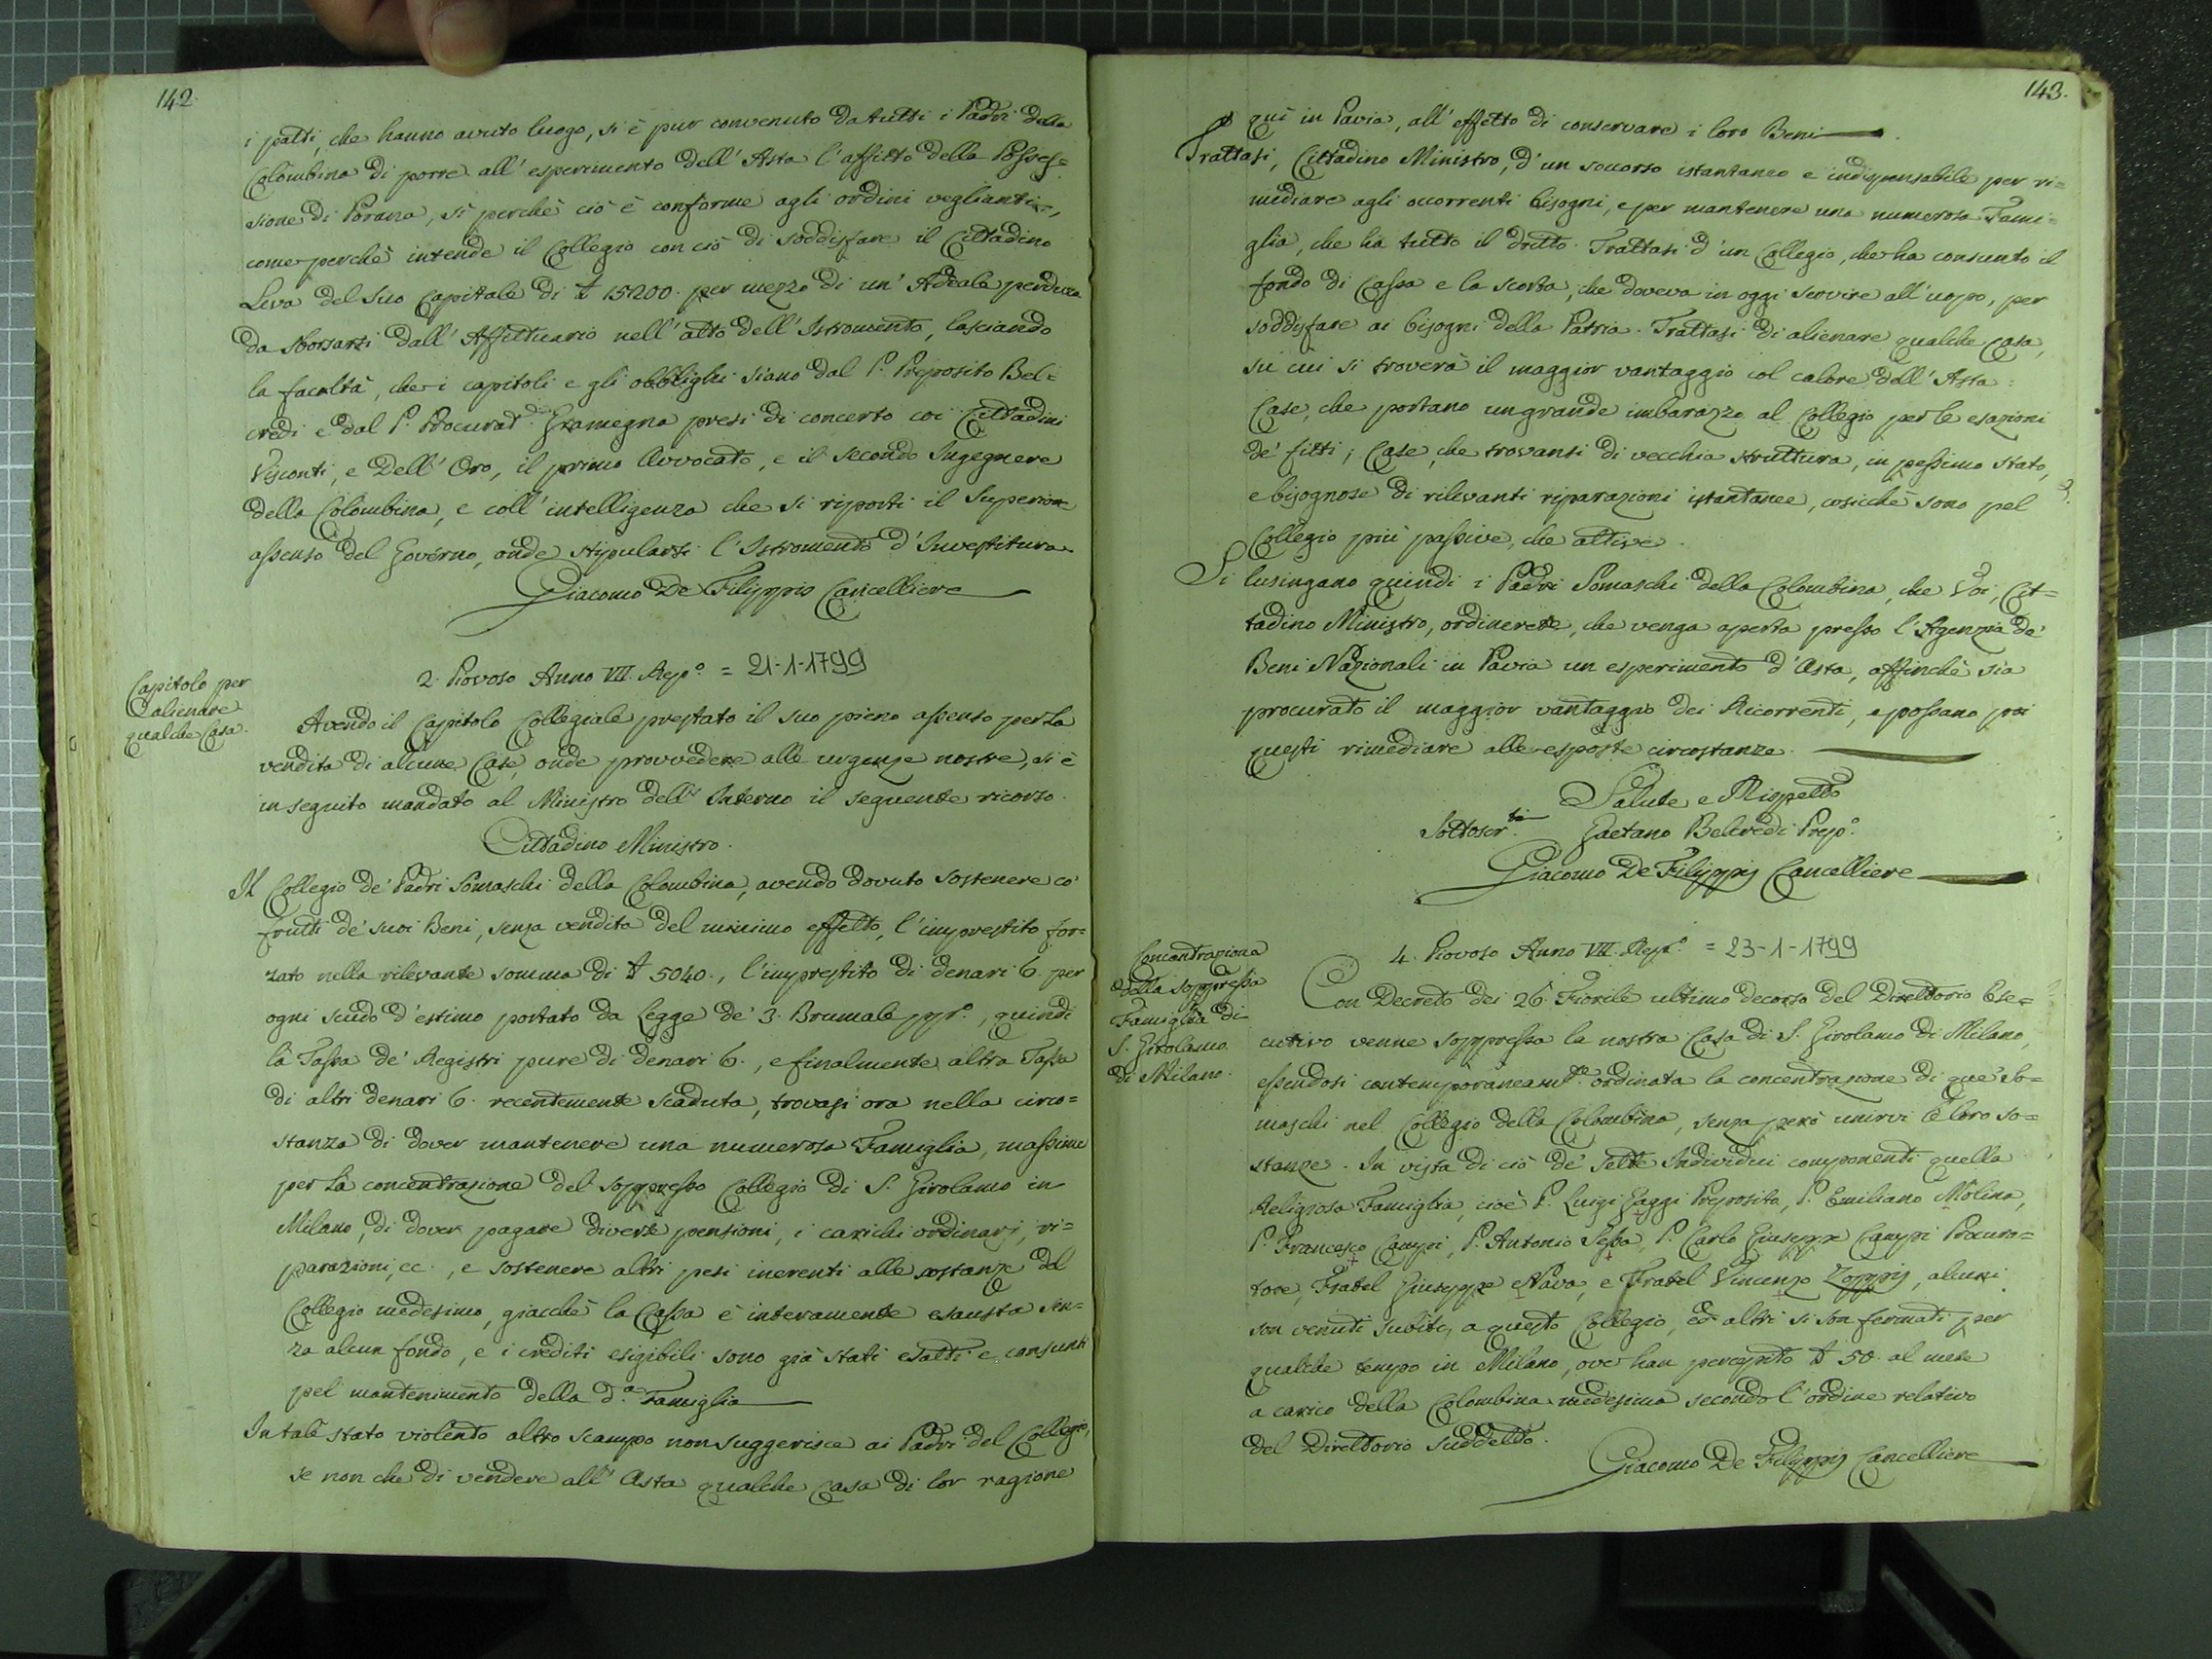 142.
i patti, che hanno avuto luogo, si è pur convenuto da tutti i Padri della
Colombina di porre all' esperimento dell' Asta l' affitto della Posses=
sione di Porana, sì perchè ciò è conforme agli ordini veglianti,
come perchè intende il Collegio con ciò di soddisfare il Cittadino
Leva del suo Capitale di ₶ 15200. per mezzo di un' Adeale perduta
da sborsarsi dall' Affittuario nell' atto dell' Istromento, lasciando
la facoltà, che i capitoli e gli obblighi siano dal P. Preposito Bel=
credi e dal P. Procurat.e Gramegna presi di concerto coi Cittadini
Visconti, e Dell' Oro, il primo Avvocato, e il secondo Ingegnere
della Colombina, e coll' intelligenza che si riporti il Superior
assenso del Governo, onde stipularsi l' Istromento d' Investitura.
Giacomo De Filippis Cancelliere
2. Piovoso Anno VII. Rep.o = 21-1-1799
Capitolo per
alienare
qualche Casa.
Avendo il Capitolo Collegiale prestato il suo pieno assenso per la
vendita di alcune Case, onde provvedere alle urgenze nostre, si è
in seguito mandato al Ministro dell' Interno il seguente ricorso.
Cittadino Ministro.
Il Collegio de' Padri Somaschi della Colombina, avendo dovuto sostenere co'
frutti de' suoi Beni, senza vendita del minimo effetto, l' imprestito for=
zato nella rilevante somma di ₶ 5040., l' imprestito di denari 6. per
ogni scudo d' estimo portato da Legge de' 3. Brumale pp.o, quindi
la Tassa de' Registri pure di denari 6., e finalmente altra Tassa
di altri denari 6. recentemente scaduta, trovasi ora nella circo=
stanza di dover mantenere una numerosa Famiglia, massime
per la concentrazione del soppresso Collegio di S. Girolamo in
Milano, di dover pagare diverse pensioni, i carichi ordinarj, ri=
parazioni, ec., e sostenere altri pesi inerenti alle sostanze del
Collegio medesimo, giacchè la Cassa è interamente esausta sen=
za alcun fondo, e i crediti esigibili sono già stati esatti e consunti
pel mantenimento della d.a Famiglia
In tale stato violento altro scampo non suggerisce ai Padri del Collegio,
se non che di vendere all' Asta qualche Casa di lor ragione
143.
quì in Pavia, all' effetto di conservare i loro Beni.
Trattasi, Cittadino Ministro, d' un soccorso istantaneo e indispensabile per ri=
mediare agli occorrenti bisogni, e per mantenere una numerosa Fami=
glia, che ha tutto il dritto. Trattasi d' un Collegio, che ha consunto il
fondo di Cassa e la scorta, che doveva in oggi servire all' uopo, per
soddisfare ai bisogni della Patria. Trattasi di alienare qualche Casa,
su cui si troverà il maggior vantaggio col calore dell' Asta:
Case, che portano un grande imbarazzo al Collegio per le esazioni
de' fitti; Case, che trovansi di vecchia struttura, in pessimo stato,
e bisognose di rilevanti riparazioni istantanee, cosicchè sono pel
Collegio più passive, che attive.
Si lusingano quindi i Padri Somaschi della Colombina, che Voi, Cit=
tadino Ministro, ordinerete, che venga aperta presso l' Agenzia de'
Beni Nazionali in Pavia un esperimento d' Asta, affinchè sia
procurato il maggior vantaggio dei Ricorrenti, e possano poi
questi rimediare alle esposte circostanze.
Salute e Rispetto
Sottoscr.ti Gaetano Belcredi Prep.o
Giacomo De Filippis Cancelliere
4. Piovoso Anno VII. Rep.o = 23-1-1799
Concentrazione
della soppressa
Famiglia di
S. Girolamo
di Milano.
Con Decreto dei 26. Fiorile ultimo decorso del Direttorio Ese=
cutivo venne soppressa la nostra Casa di S. Girolamo di Milano,
essendosi contemporaneam.te ordinata la concentrazione di que' So=
maschi nel Collegio della Colombina, senza però unirvi le loro so=
stanze. In vista di ciò de' sette Individui componenti quella
Religiosa Famiglia, cioè P. Luigi Gaggi Preposito, P. Emiliano Molina,
P. Francesco Campi, P. Antonio Sessa, P. Carlo Giuseppe Campi Procura=
tore, Fratel Giuseppe Nava, e Fratel Vincenzo Zoppis, alcuni
son venuti subito a questo Collegio, ed altri si son fermati per
qualche tempo in Milano, ove han percepito ₶ 50. al mese
a carico della Colombina medesima secondo l' ordine relativo
del Direttorio suddetto.
Giacomo De Filippis Cancelliere